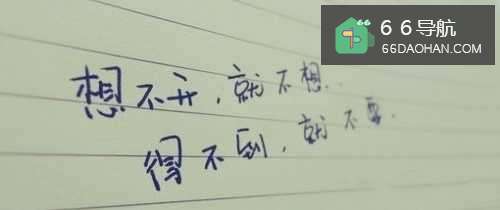 66导航
66DAOHAN.COM
想不开,就不想..
得不到,就不要.